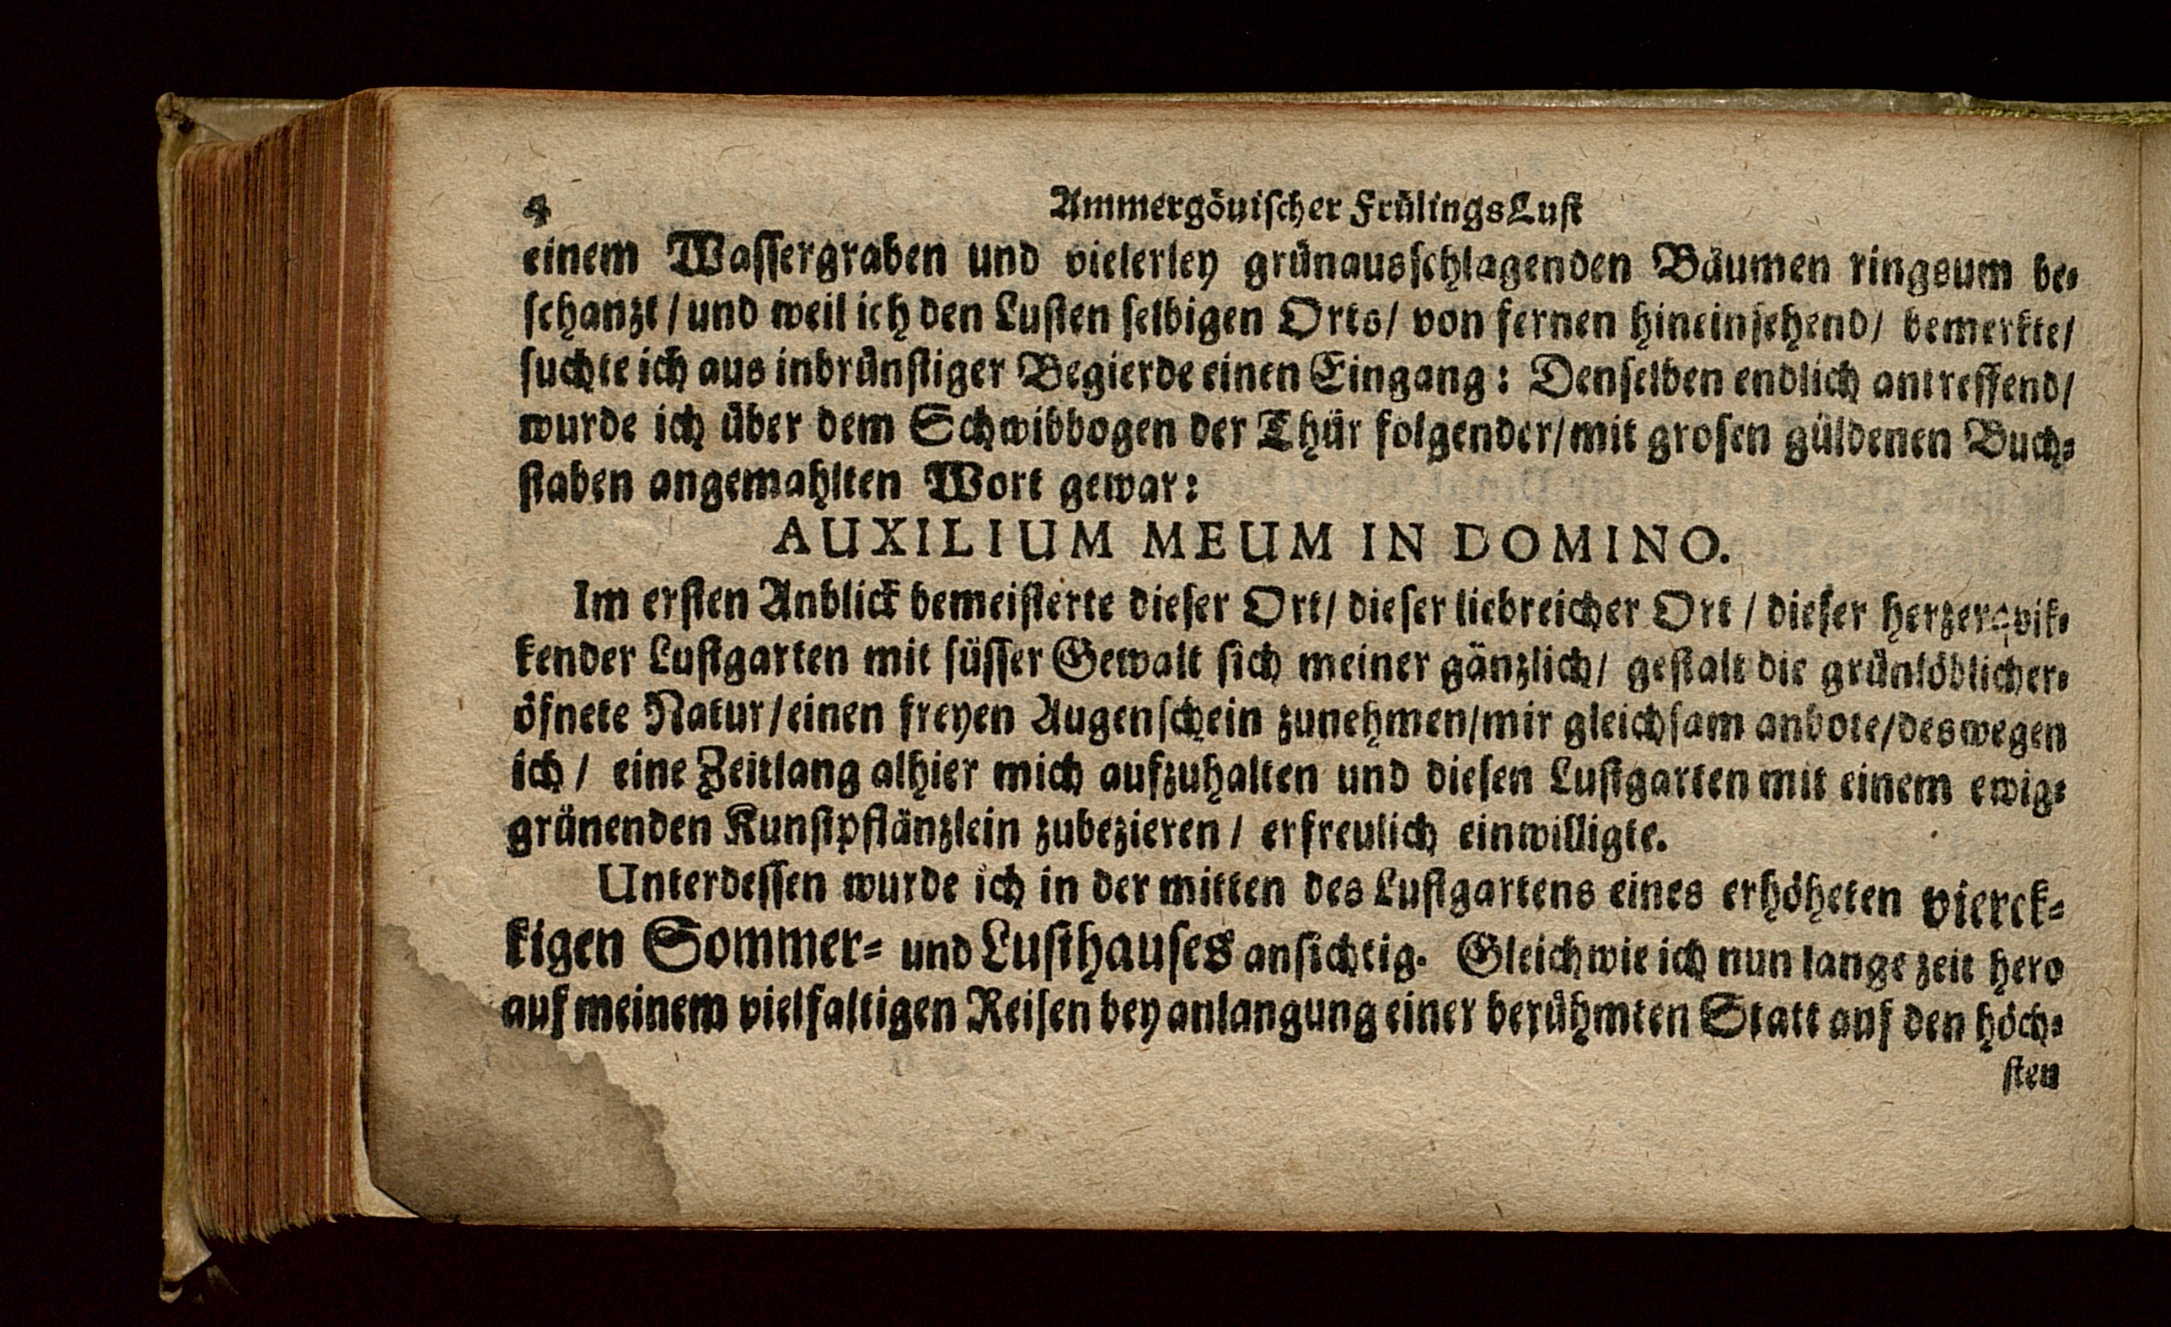 4 Ammergöuischer FrülingsLust
einem Wassergraben und vielerley grünausschlagenden Bäumen ringsum be-
schanzt / und weil ich den Lusten selbigen Orts / von fernen hineinsehend / bemerkte /
suchte ich aus inbrünstiger Begierde einen Eingang: Denselben endlich antreffend /
wurde ich über dem Schwibbogen der Thür folgender / mit grosen güldenen Buch-
staben angemahlten Wort gewar:
AUXILIUM MEUM IN DOMINO.
Im ersten Anblick bemeisterte dieser Ort / dieser liebreicher Ort / dieser herzerqvik-
kender Lustgarten mit süsser Gewalt sich meiner gänzlich / gestalt die grünlöblicher-
öfnete Natur / einen freyen Augenschein zunehmen / mir gleichsam anbote / deswegen
ich / eine Zeitlang alhier mich aufzuhalten und diesen Lustgarten mit einem ewig-
grünenden Kunstpflänzlein zubezieren / erfreulich einwilligte.
Unterdessen wurde ich in der mitten des Lustgartens eines erhöheten vierck-
kigen Sommer- und Lusthauses ansichtig. Gleichwie ich nun lange zeit hero
auf meinem vielfaltigen Reisen bey anlangung einer berühmten Statt auf den höch-
sten